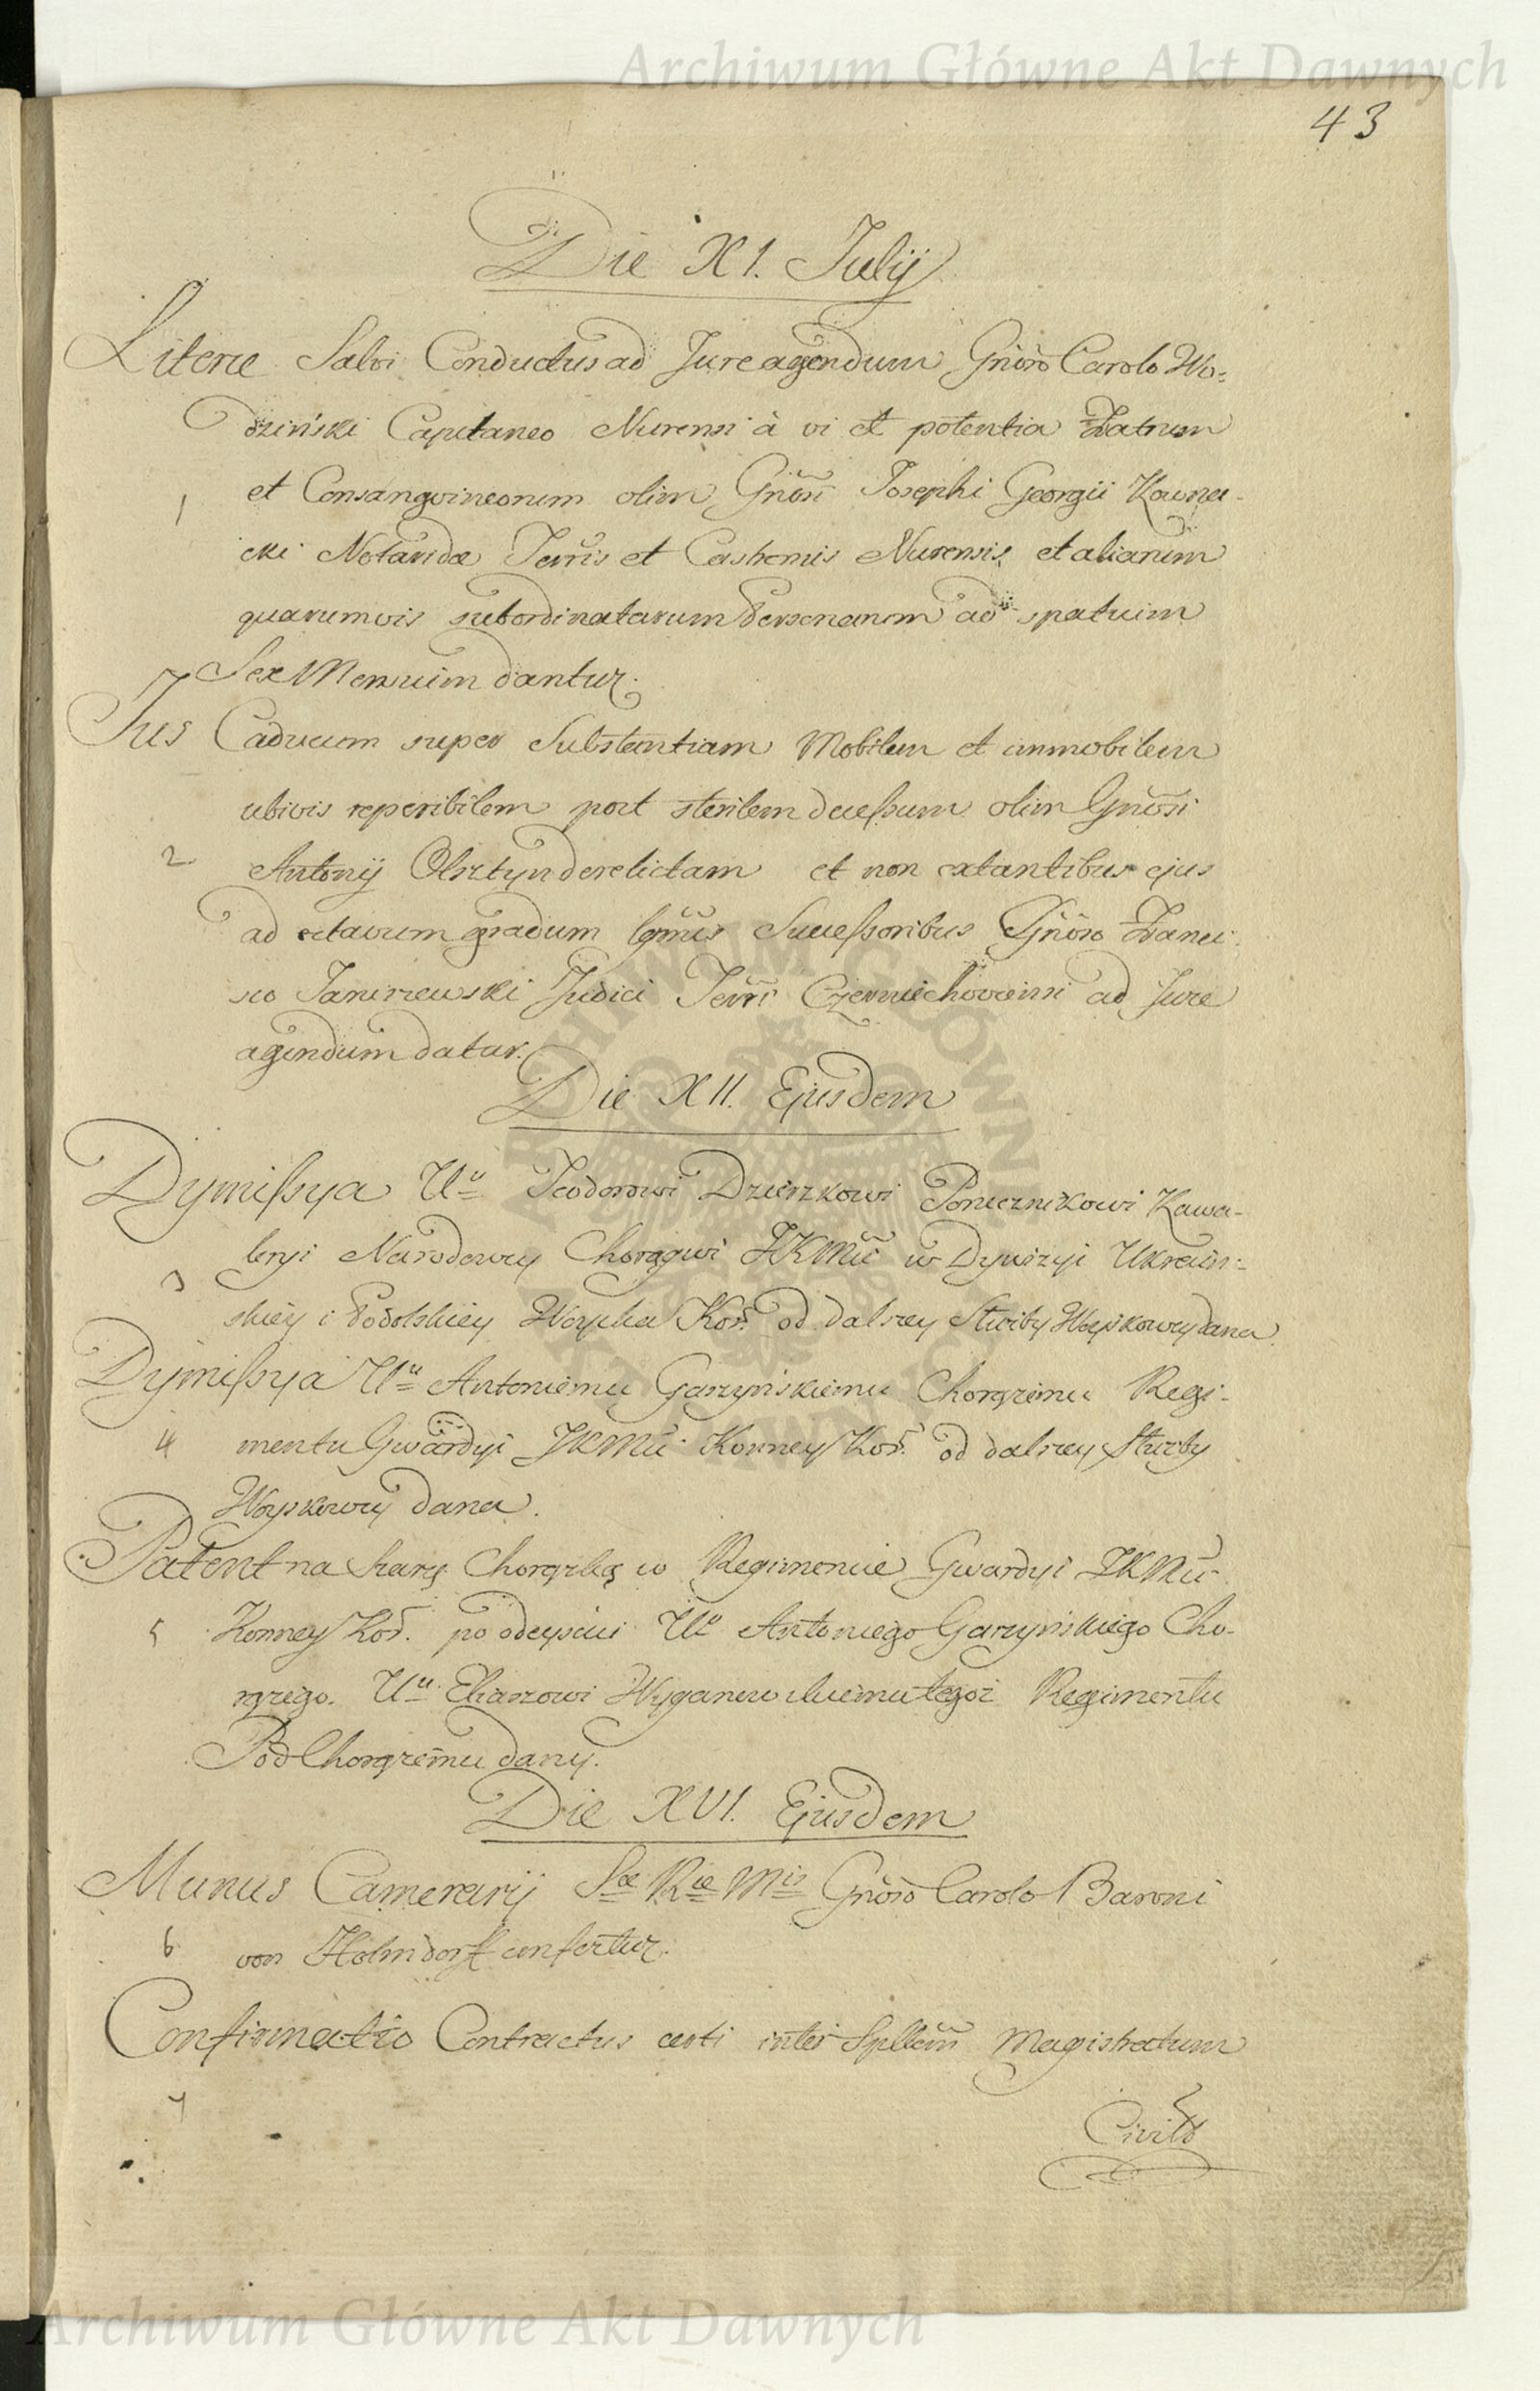 Archiwum Główne Akt Dawnych
43
Die XI. Julij
Literæ Salvi Conductus ad Jure agendum Gnõso Carolo Wo-
dziński Capitaneo Nurensi à vi et potentia Fratrum
1 et Consangvineorum olim Gnõsi Josephi Georgii Kawna-
cki Notarii Terris et Castrensis Nurensis, et aliarum
quarumvis subordinatarum Personarum ad spatium
Sex Mensium dantur.
Jus Caducum super Substantiam Mobilem et immobilem
ubivis reperibilem post sterilem decessum olim Gnõsi
2 Antonij Olsztyn derelictam et non extantibus ejus
ad octavum gradum Successoribus Gnõso Franci-
sco Janiszewski Judici Terrĩ Czerniechoviensi ad Jure
agendum datur.
Die XII. Ejusdem
Dymissya Uu Teodorowi Dzierzkowi Porucznikowi Kawa-
leryi Narodowey Chorągwi JKMci w Dywizyi Ukrain-
3 skiey i Podolskiey Woyska Kor. od dalszey Służby Woyskowey dana
Dymissya Uu Antoniemu Garzyńskiemu Chorążemu Regi-
4 mentu Gwardyi JKMci Konney Kor. od dalszey Służby
Woyskowey dana.
Patent na Szarżę Chorążką w Regimencie Gwardyi JKMci
5 Konney Kor. po odeyściu Uo Antoniego Garzyńskiego Cho-
rążego. Uu Eliaszowi Wyganowskiemu tegoż Regimentu
Pod Chorążemu dany.
Die XVI. Ejusdem
Munus Camerarij Sæ Rie Mtis Gnõso Carolo Baroni
6 von Holmdorff confertur.
Confirmatio Contractus certi inter Spllem Magistratum
7
Civits
ARCHIWUM GŁÓWNE AKT DAWNYCH
Archiwum Główne Akt Dawnych